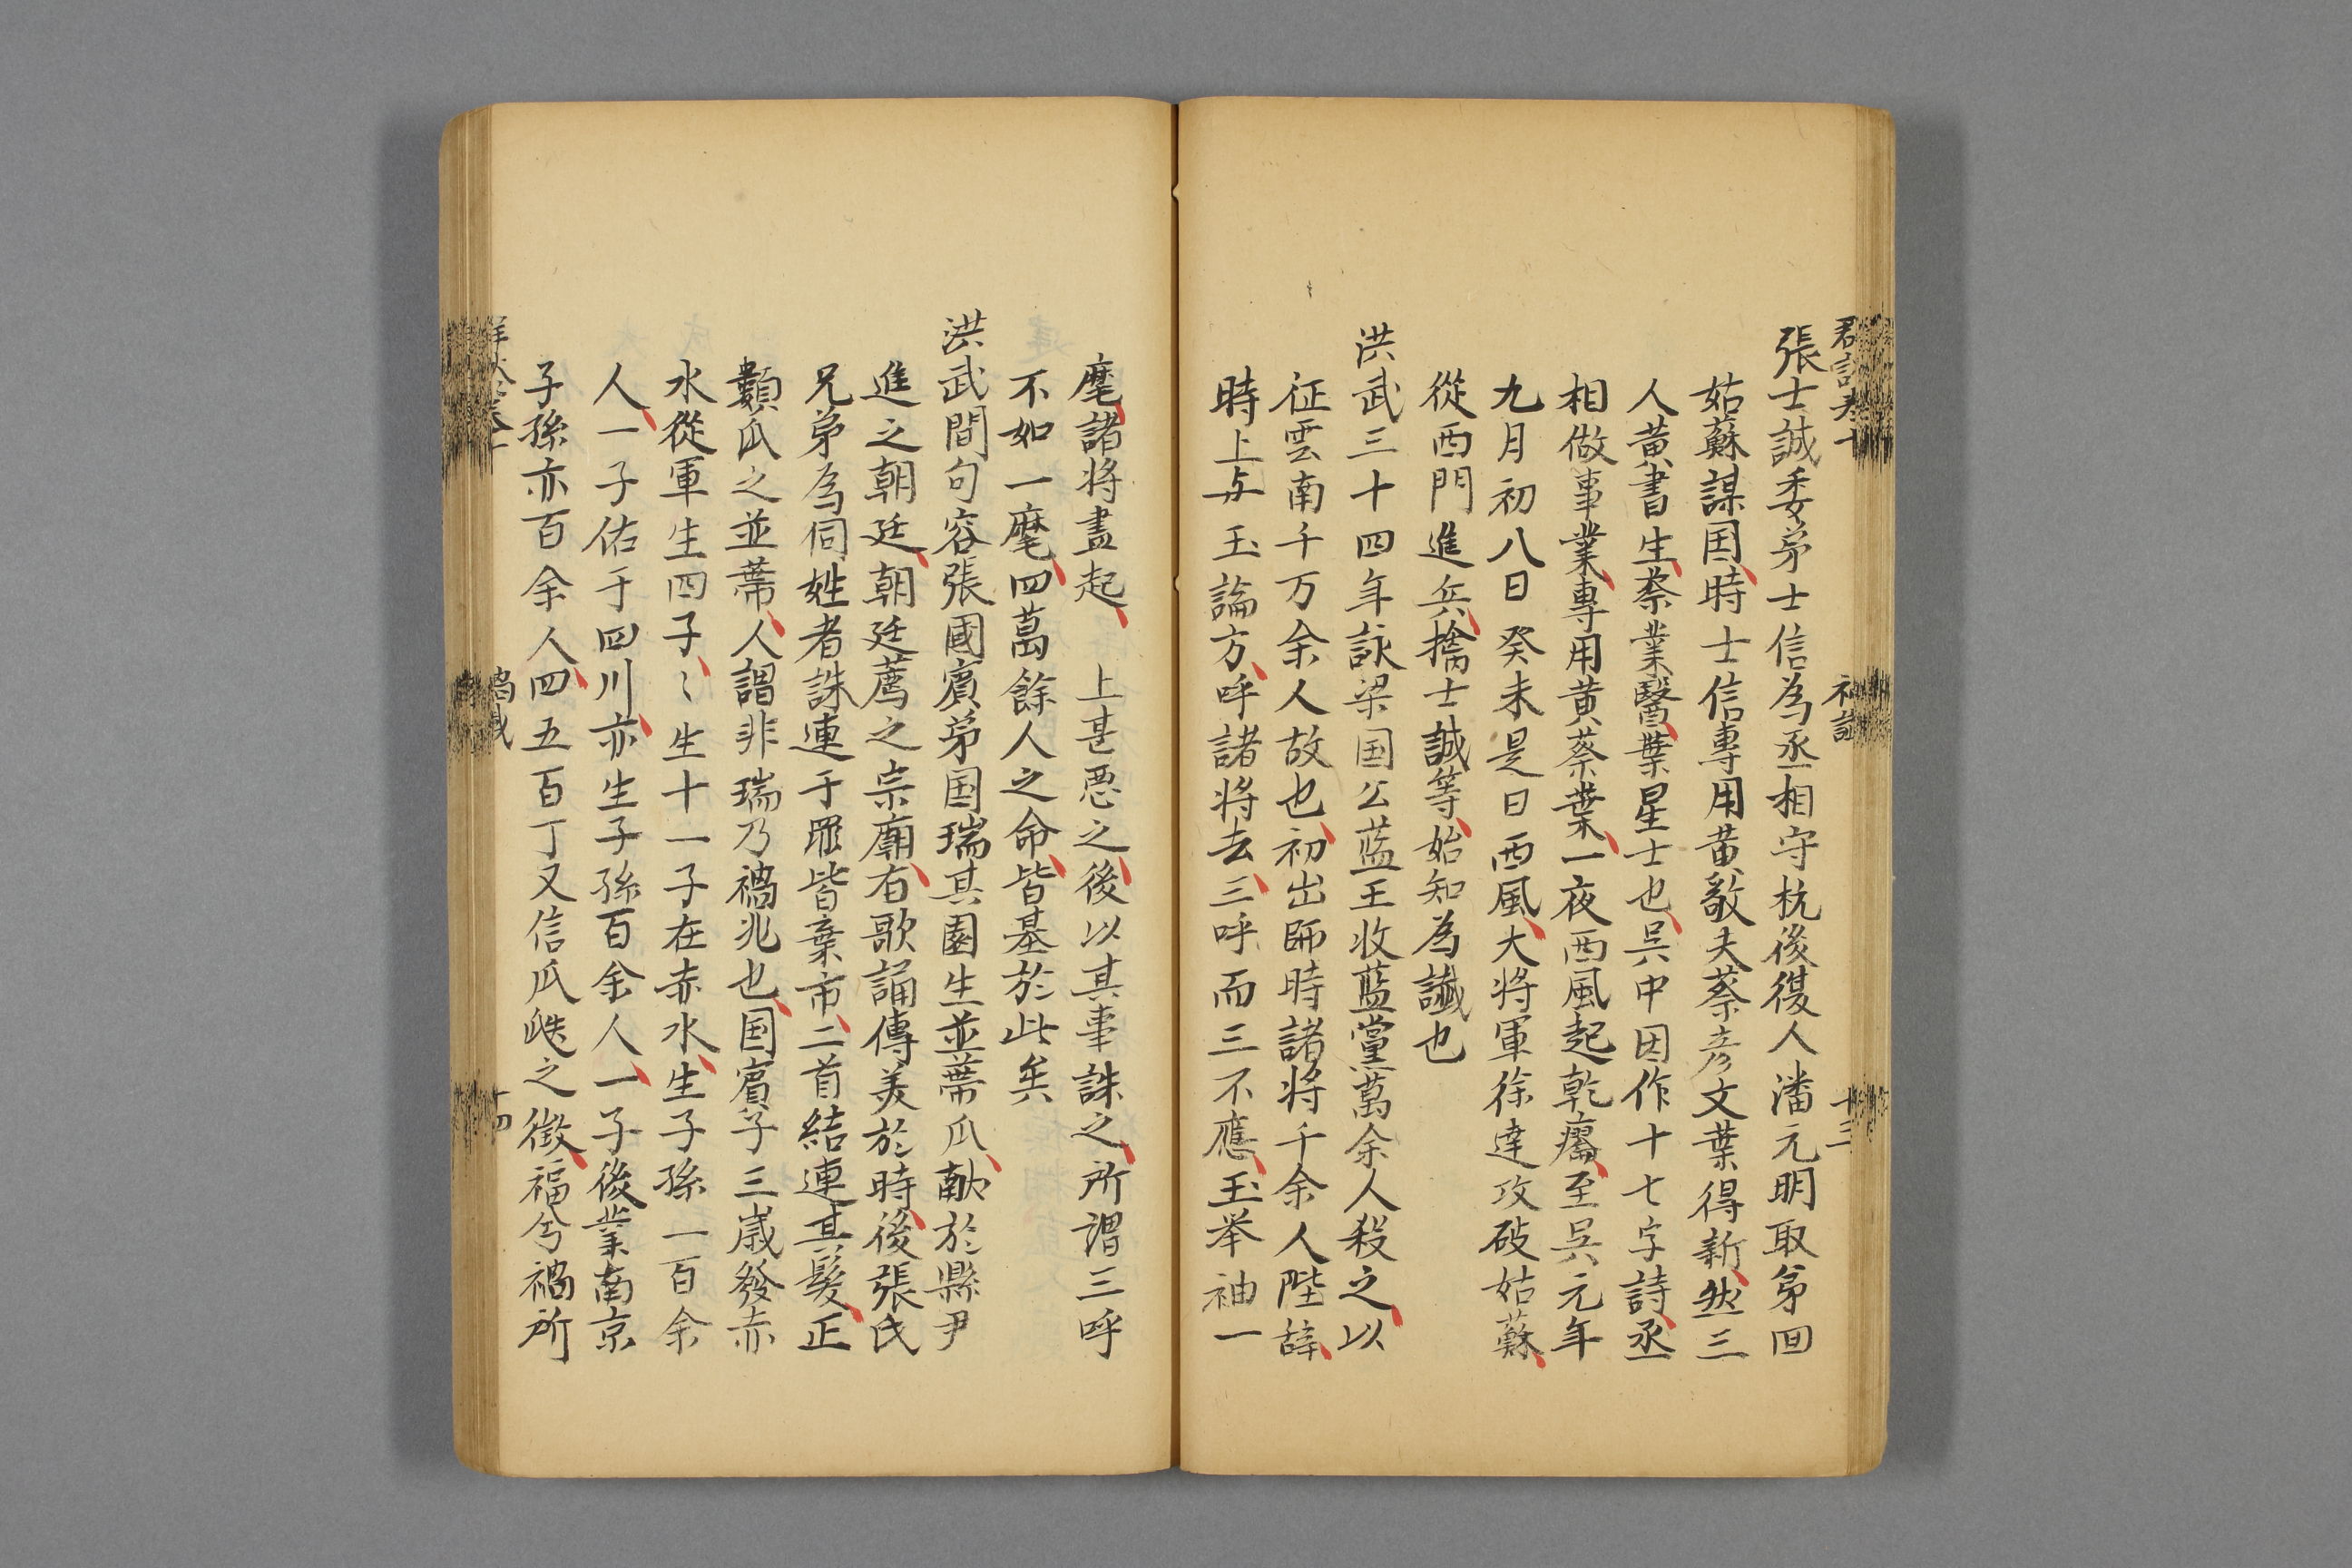 張士誠委弟士信為丞相守杭後復人潘元明取弟囬
姑蘇謀国時士信專用黄敬夫蔡彦文葉得新然三
人黄書生蔡業醫葉星士也呉中因作十七字詩丞
相做事業專用黄蔡葉一夜西風起乾癟至呉元年
九月初八日癸未是日西風大将軍徐達攻破姑蘇
從西門進兵擒士誠等始知為讖也
洪武三十四年詠梁国公蓝玉收藍黨萬余人殺之以
征雲南千万余人故也初出師時諸将千余人陛辞
時上与玉論方呼諸将去三呼而三不應玉举袖一
麾諸将盡起 上甚悪之後以其事誅之所謂三呼
不如一麾四萬餘人之命皆基於此矣
洪武間句容張國賓弟国瑞其園生並蒂瓜献於縣尹
進之朝廷朝廷薦之宗廟有歌誦傳美於時後張氏
兄弟為同姓者誅連于罪皆棄市二首結連其髮正
類瓜之並蒂人謂非瑞乃禍兆也国賓子三歳發赤
水從軍生四子〻生十一子在赤水生子孫一百余
人一子佑于四川亦生子孫百余人一子後業南京
子孫亦百余人四五百丁又信瓜瓞之徴福兮禍所
十三
十四